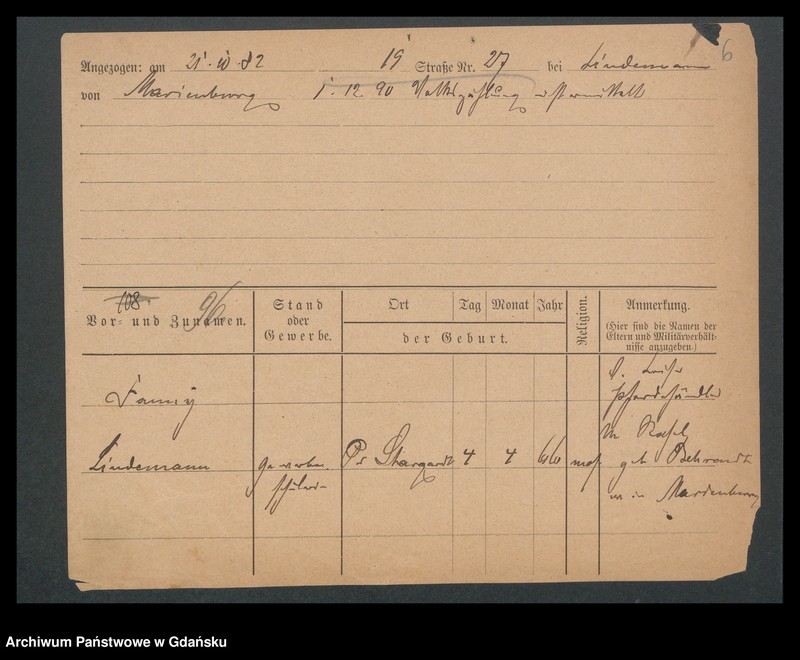 6
Angezogen: am 21. 10. 82 19 Straße Nr. 27 bei Lindemann
von Marienburg 1. 12. 90 Volkszählung
108 96
Vor- und Zunamen.
Stand oder Gewerbe.
Ort Tag Monat Jahr
der Geburt.
Religion.
Anmerkung.
(Hier sind die Namen der
Eltern und Militärverhält-
nisse anzugeben.)
Fanny
Pferdehändler
Lindemann Pr Stargardt 4 4 66 mos. geb Behrendt
in Marienburg
Archiwum Państwowe w Gdańsku